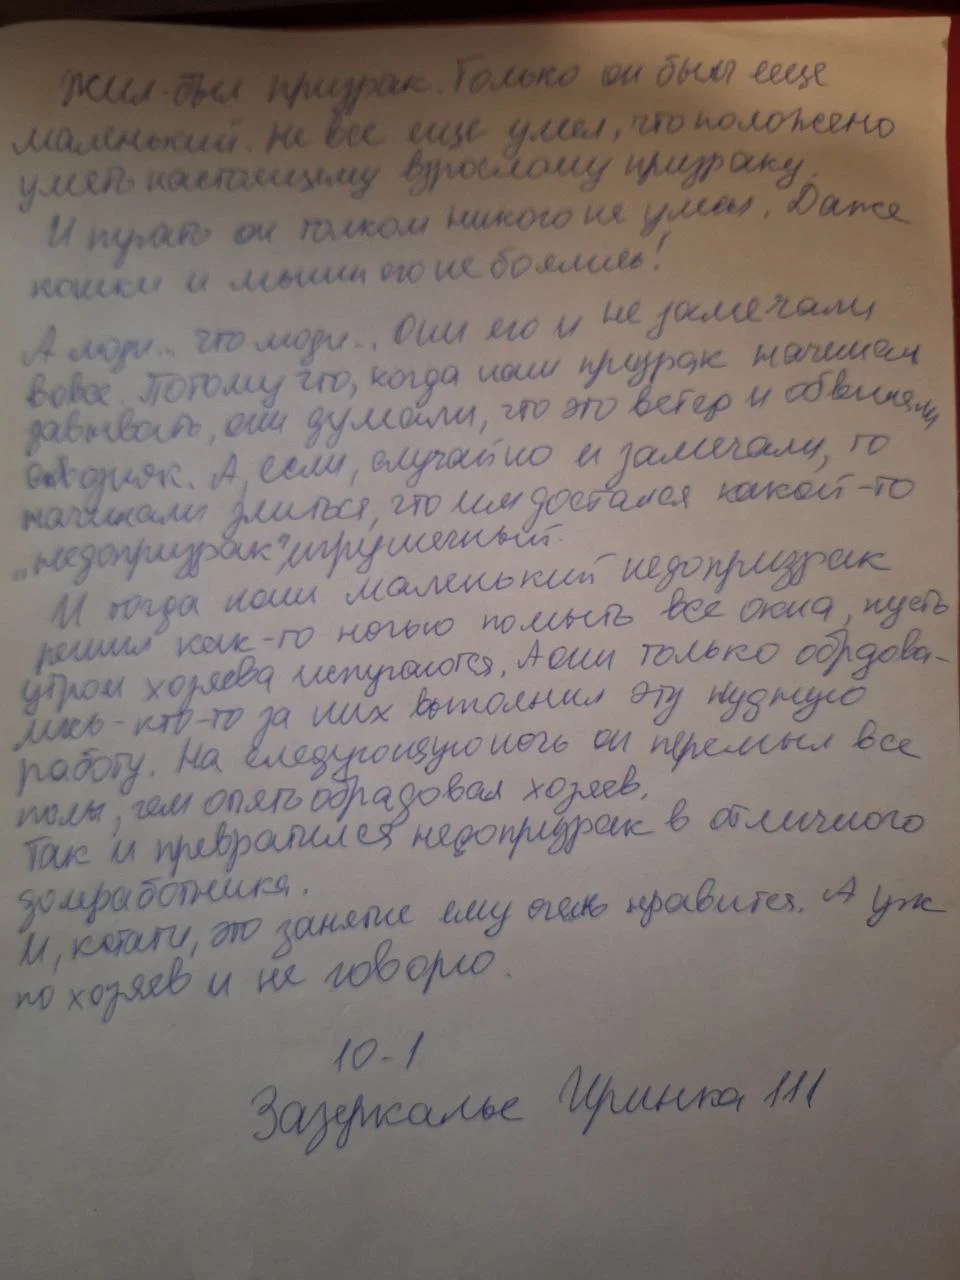 Жил-был призрак. Только он был еще
маленький. Не все еще умел, что положено
уметь настоящему взрослому призраку.
И пугать он толком никого не умел. Даже
кошки и мыши его не боялись!
А люди... что люди... Они его и не замечали
вовсе. Потому что, когда наш призрак начинал
завывать, они думали, что это ветер и обвиняли
сквозняк. А, если, случайно и замечали, то
начинали злиться, что им достался какой-то
"недопризрак" игрушечный.
И тогда наш маленький недопризрак
решил как-то ночью помыть все окна, пусть
утром хозяева испугаются. А они только обрадова-
лись - кто-то за них выполнил эту нудную
работу. На следующую ночь он перемыл все
полы, чем опять обрадовал хозяев.
Так и превратился недопризрак в отличного
домработника.
И, кстати, это занятие ему очень нравится. А уж
по хозяев и не говорю.
10-1
Зазеркалье Иринка 111